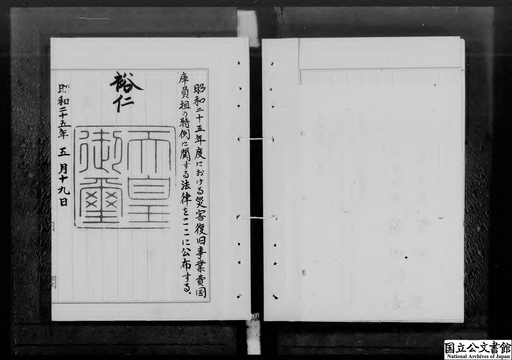 昭和二十五年度における災害復旧事業費国
庫負担の特例に関する法律をここに公布する。
裕仁
天皇
御璽
昭和二十五年五月十九日
国立公文書館
National Archives of Japan